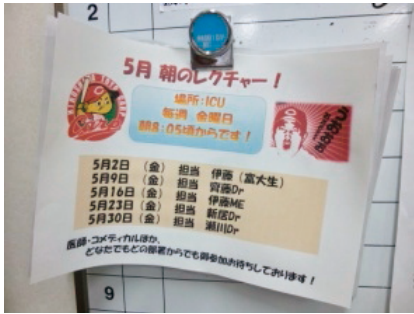 2
5月 朝のレクチャー!
場所:ICU
毎週 金曜日
朝8:05頃からです!
5月2日 (金) 担当 伊藤(富大生)
5月9日 (金) 担当 齊藤Dr
5月16日 (金) 担当 伊藤ME
5月23日 (金) 担当 新居Dr
5月30日 (金) 担当 瀬川Dr
医師・コメディカルほか、
どなたでもどの部署からでも御参加お待ちしております!
9